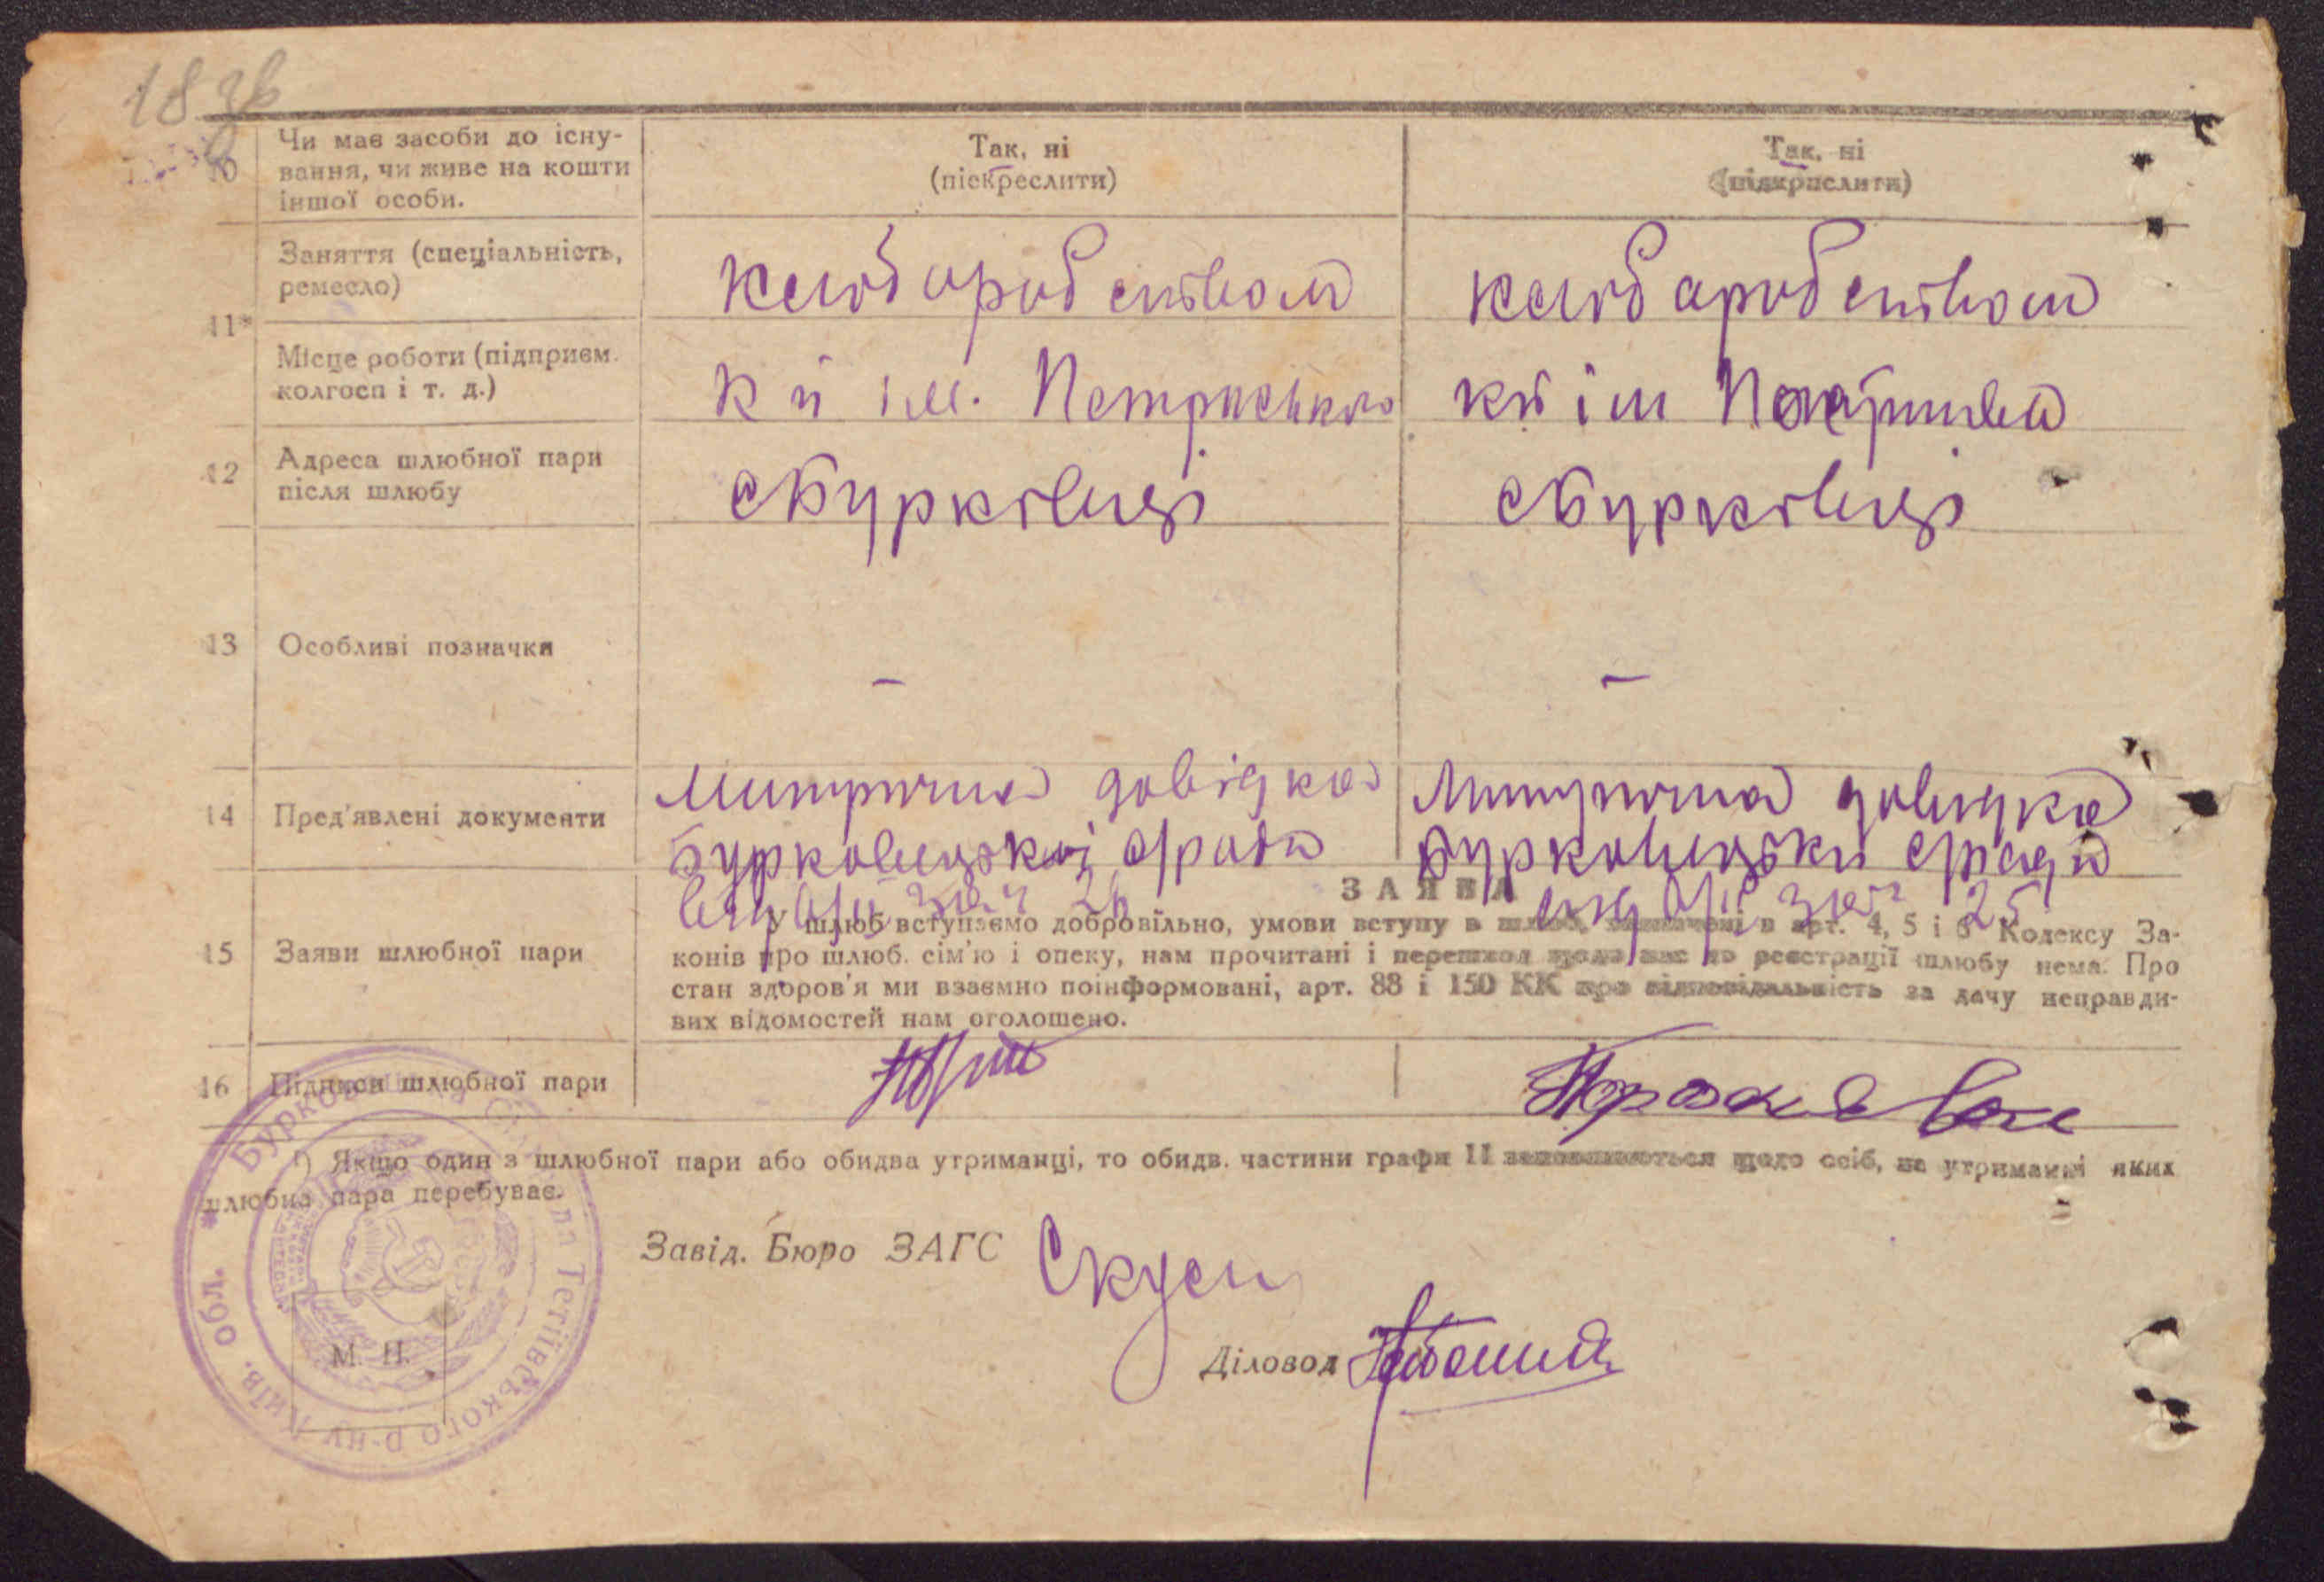 18 зв
10 Чи має засоби до існу-
вання, чи живе на кошти
іншої особи.
Так, ні
(піскреслити)
Так, ні
(підкрислити)
11* Заняття (спеціальність,
ремесло)
Місце роботи (підприєм.
колгосп і т. д.)
к й ім. Петриського
кй ім
12 Адреса шлюбної пари
після шлюбу
с Бурківці
с Бурківці
13 Особливі позначки
–
–
14 Пред'явлені документи
Митрична довідка
Бурковецької с/ради
Митрична довидка
Бурковецьки с/ради
15 Заяви шлюбної пари
ЗАЯВА
У шлюб вступаємо добровільно, умови вступу в шлюб, зазначені в арт. 4, 5 і 6 Кодексу За-
конів про шлюб. сім'ю і опеку, нам прочитані і перешкод щодо нас до реєстрації шлюбу нема. Про
стан здоров'я ми взаємно поінформовані, арт. 88 і 150 КК про відповідальність за дачу неправди-
вих відомостей нам оголошено.
16 Підписи шлюбної пари
*) Якщо один з шлюбної пари або обидва утриманці, то обидв. частини графи 11 заповнюються щодо осіб, на утриманні яких
шлюбна пара перебуває.
Завід. Бюро ЗАГС
Діловод
М. П.
Тетіївського р-ну Київ. обл.